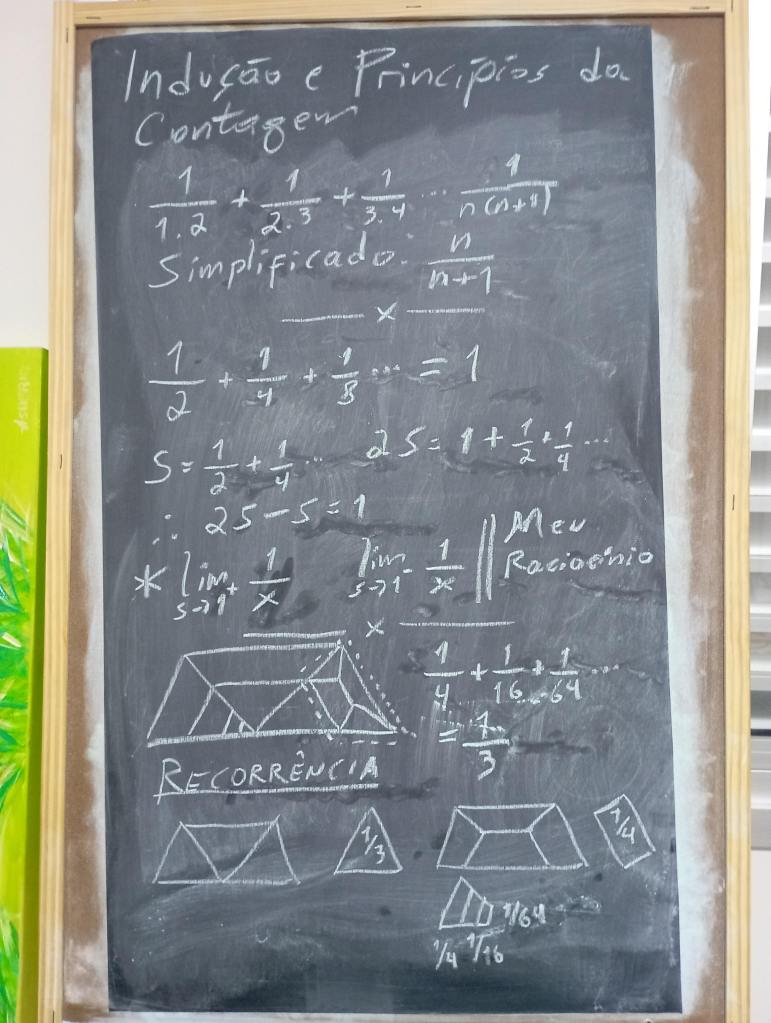 Indução e Princípios da
Contagem
1/1.2 + 1/2.3 + 1/3.4 ... 1/n(n+1)
Simplificado: n/n+1
x
1/2 + 1/4 + 1/8 ... = 1
S = 1/2 + 1/4 ... 2S = 1 + 1/2 + 1/4 ...
∴ 2S - S = 1
* lim s→1⁺ 1/x lim s→1⁻ 1/x || Meu
Raciocínio
x
1/4 + 1/16 + 1/64 ...
= 1/3
RECORRÊNCIA
1/3
1/4
1/64
1/4 1/16